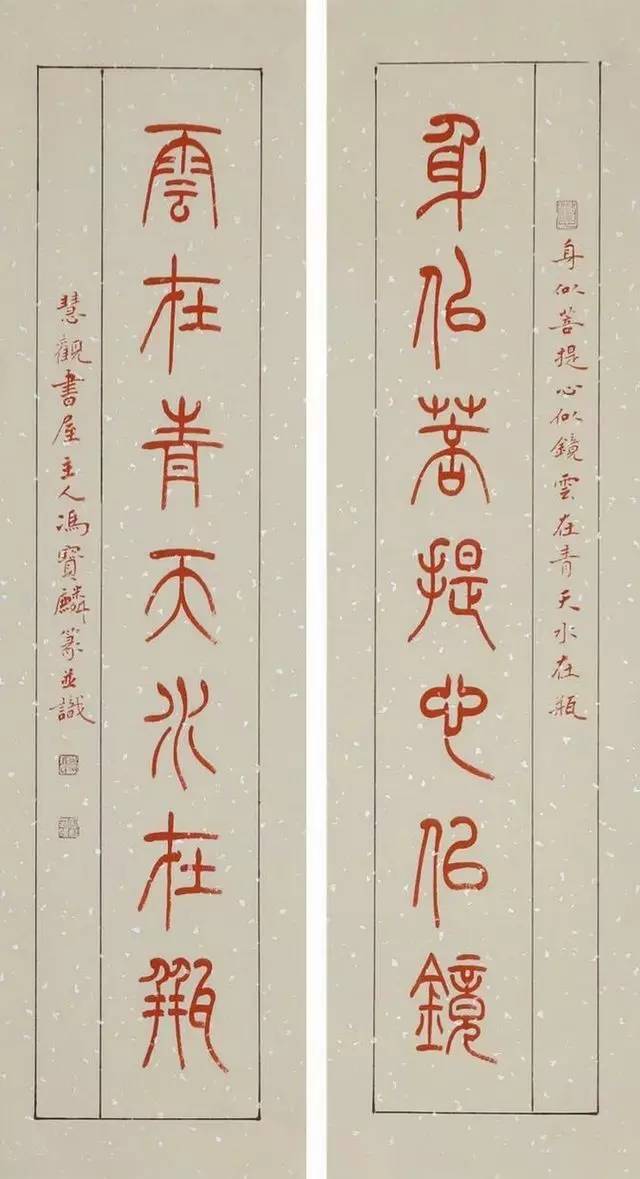 身似菩提心似鏡雲在青天水在瓶
身佀菩提心佀鏡
雲在青天水在瓶
慧觀書屋主人馮寶麟篆並識